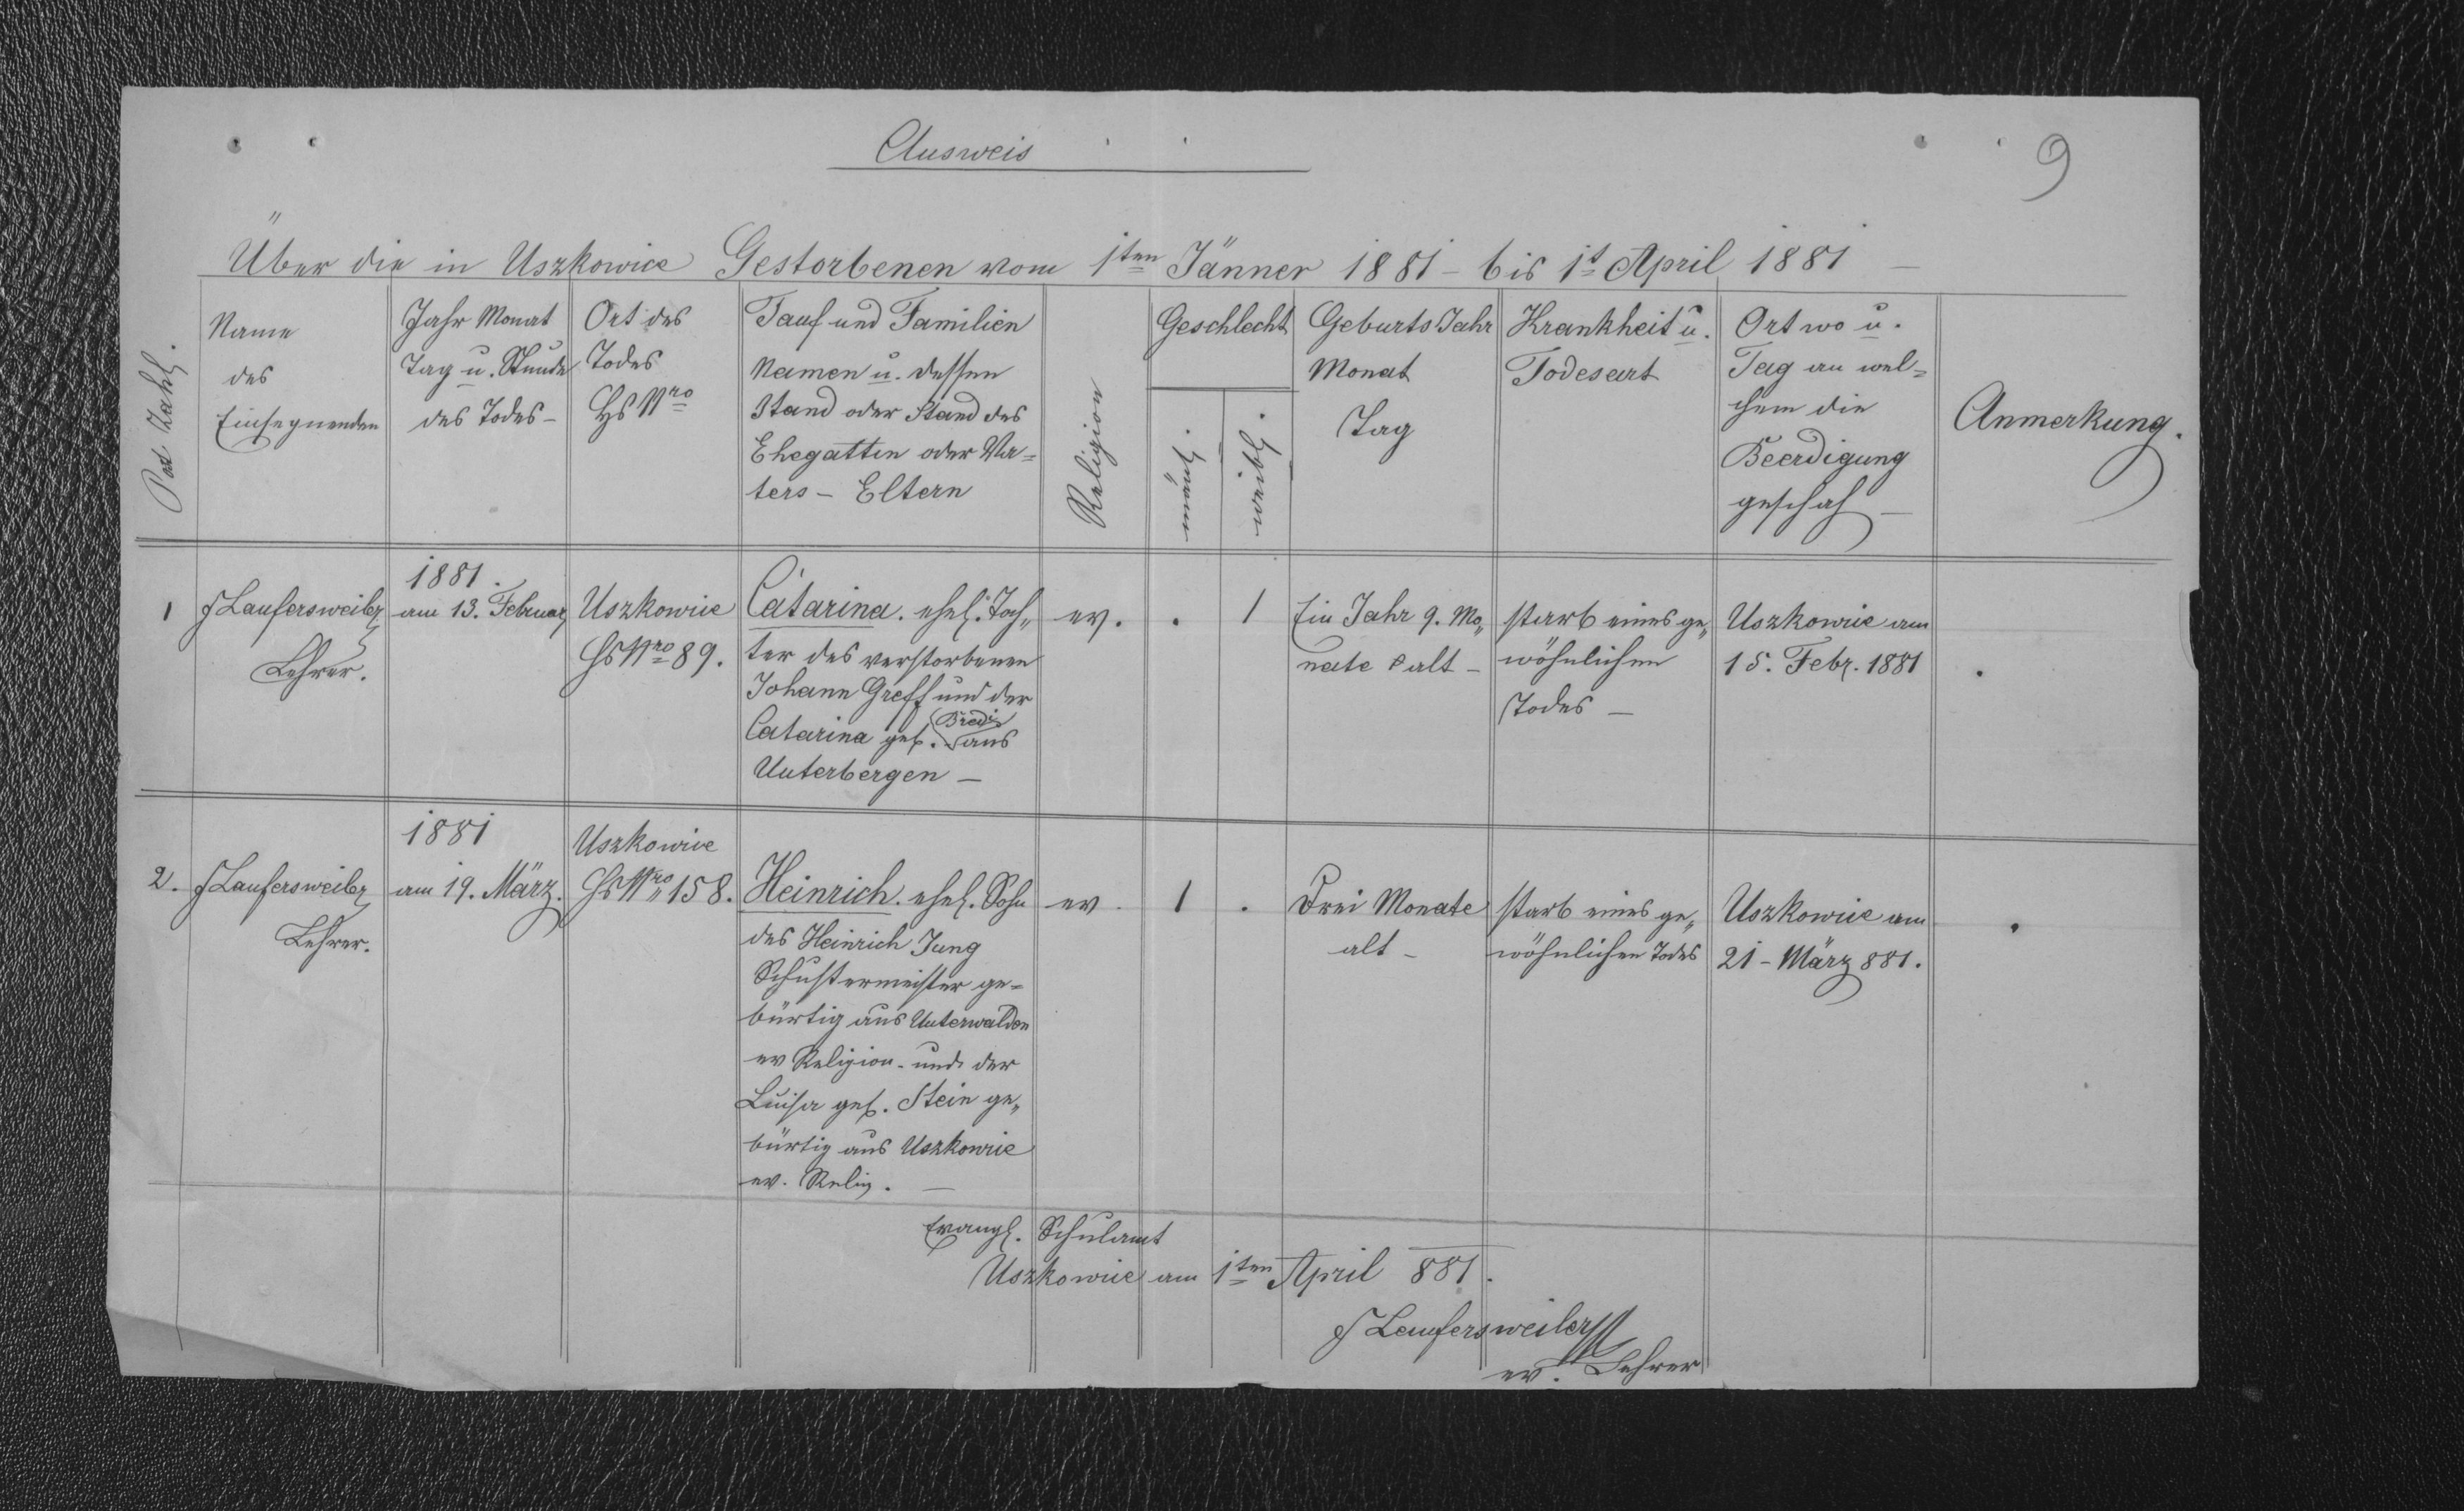 Ausweis
9
Über die in Uszkowice Gestorbenen vom 1ten Jänner 1881 - bis 1t April 1881 -
Post Zahl.
Name
des
Einsegnenden
Jahr Monat
Tag u. Stunde
des Todes -
Ort des
Todes
Hs Nro
Tauf und Familien
Namen u. dessen
Stand oder Stand des
Ehegatten oder Va=
ters - Eltern
Religion
Geschlecht
männl.
weibl.
Geburts Jahr
Monat
Tag
Krankheit u.
Todesart
Ort wo u.
Tag an wel=
chem die
Beerdigung
geschah -
Anmerkung.
1
J Laufersweiler
Lehrer.
1881.
am 13. Februar
Uszkowice
Hs Nro 89.
Catarina. ehel. Toch„
ter des verstorbenen
Johann Greff und der
Catarina geb. Bredi aus
Unterbergen -
ev.
.
1
Ein Jahr 9. Mo„
nate alt -
starb eines ge„
wöhnlichen
Todes -
Uszkowice am
15. Febr. 1881
.
2.
J Laufersweiler
Lehrer.
1881
am 19. März.
Uszkowice
Hs Nro 158.
Heinrich. ehel. Sohn
des Heinrich Jung
Schustermeister ge=
bürtig aus Unterwalden
ev Religion - und der
Luisa geb. Stein ge„
bürtig aus Uszkowice
ev. Relig. -
ev.
1
.
Drei Monate
alt -
starb eines ge„
wöhnlichen Todes
Uszkowice am
21 - März 881.
.
Evangl. Schulamt
Uszkowice am 1ten April 881.
J Laufersweiler
ev. Lehrer